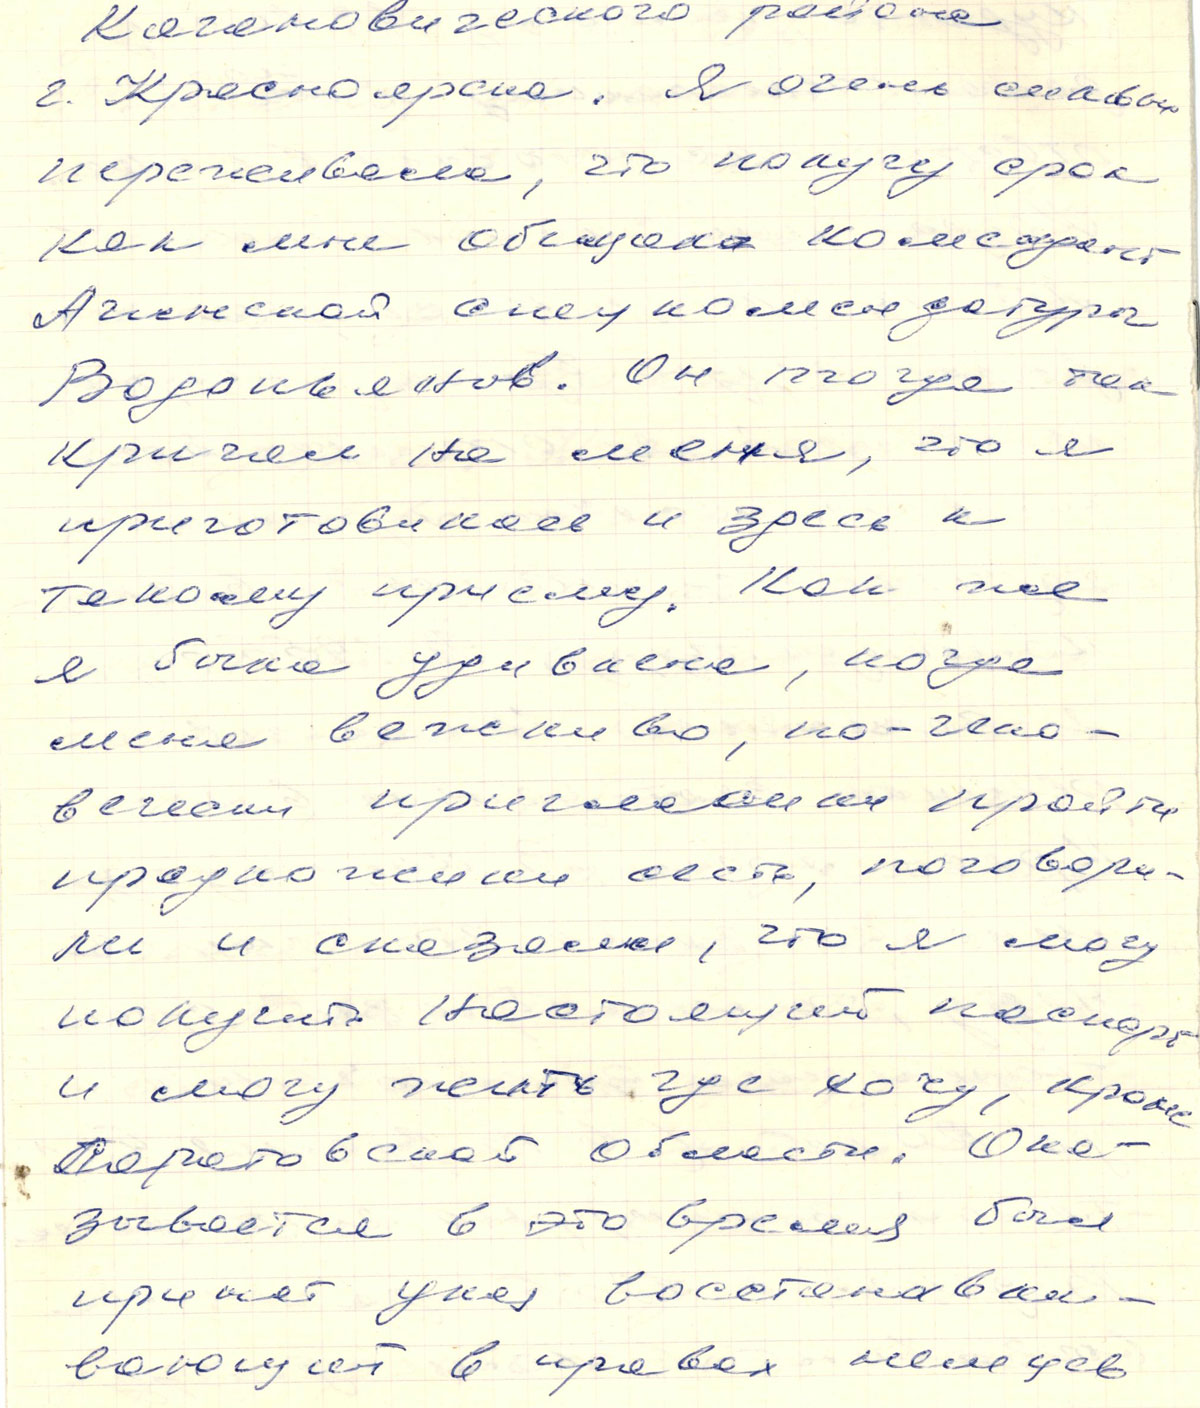 Кагановического района
г. Красноярска. Я очень сильно
переживала, что получу срок
как мне обещал комендант
Ачинской спецкомендатуры
Водопьянов. Он тогда так
кричал на меня, что я
приготовилась и здесь к
такому приему. Как же
я была удивлена, когда
меня вежливо, по-чело-
вечески пригласили пройти
предложили сесть, поговори-
ли и сказали, что я могу
получить настоящий паспорт
и могу жить где хочу, кроме
Саратовской области. Ока-
зывается в это время был
принят указ восстанавли-
вающий в правах немцев